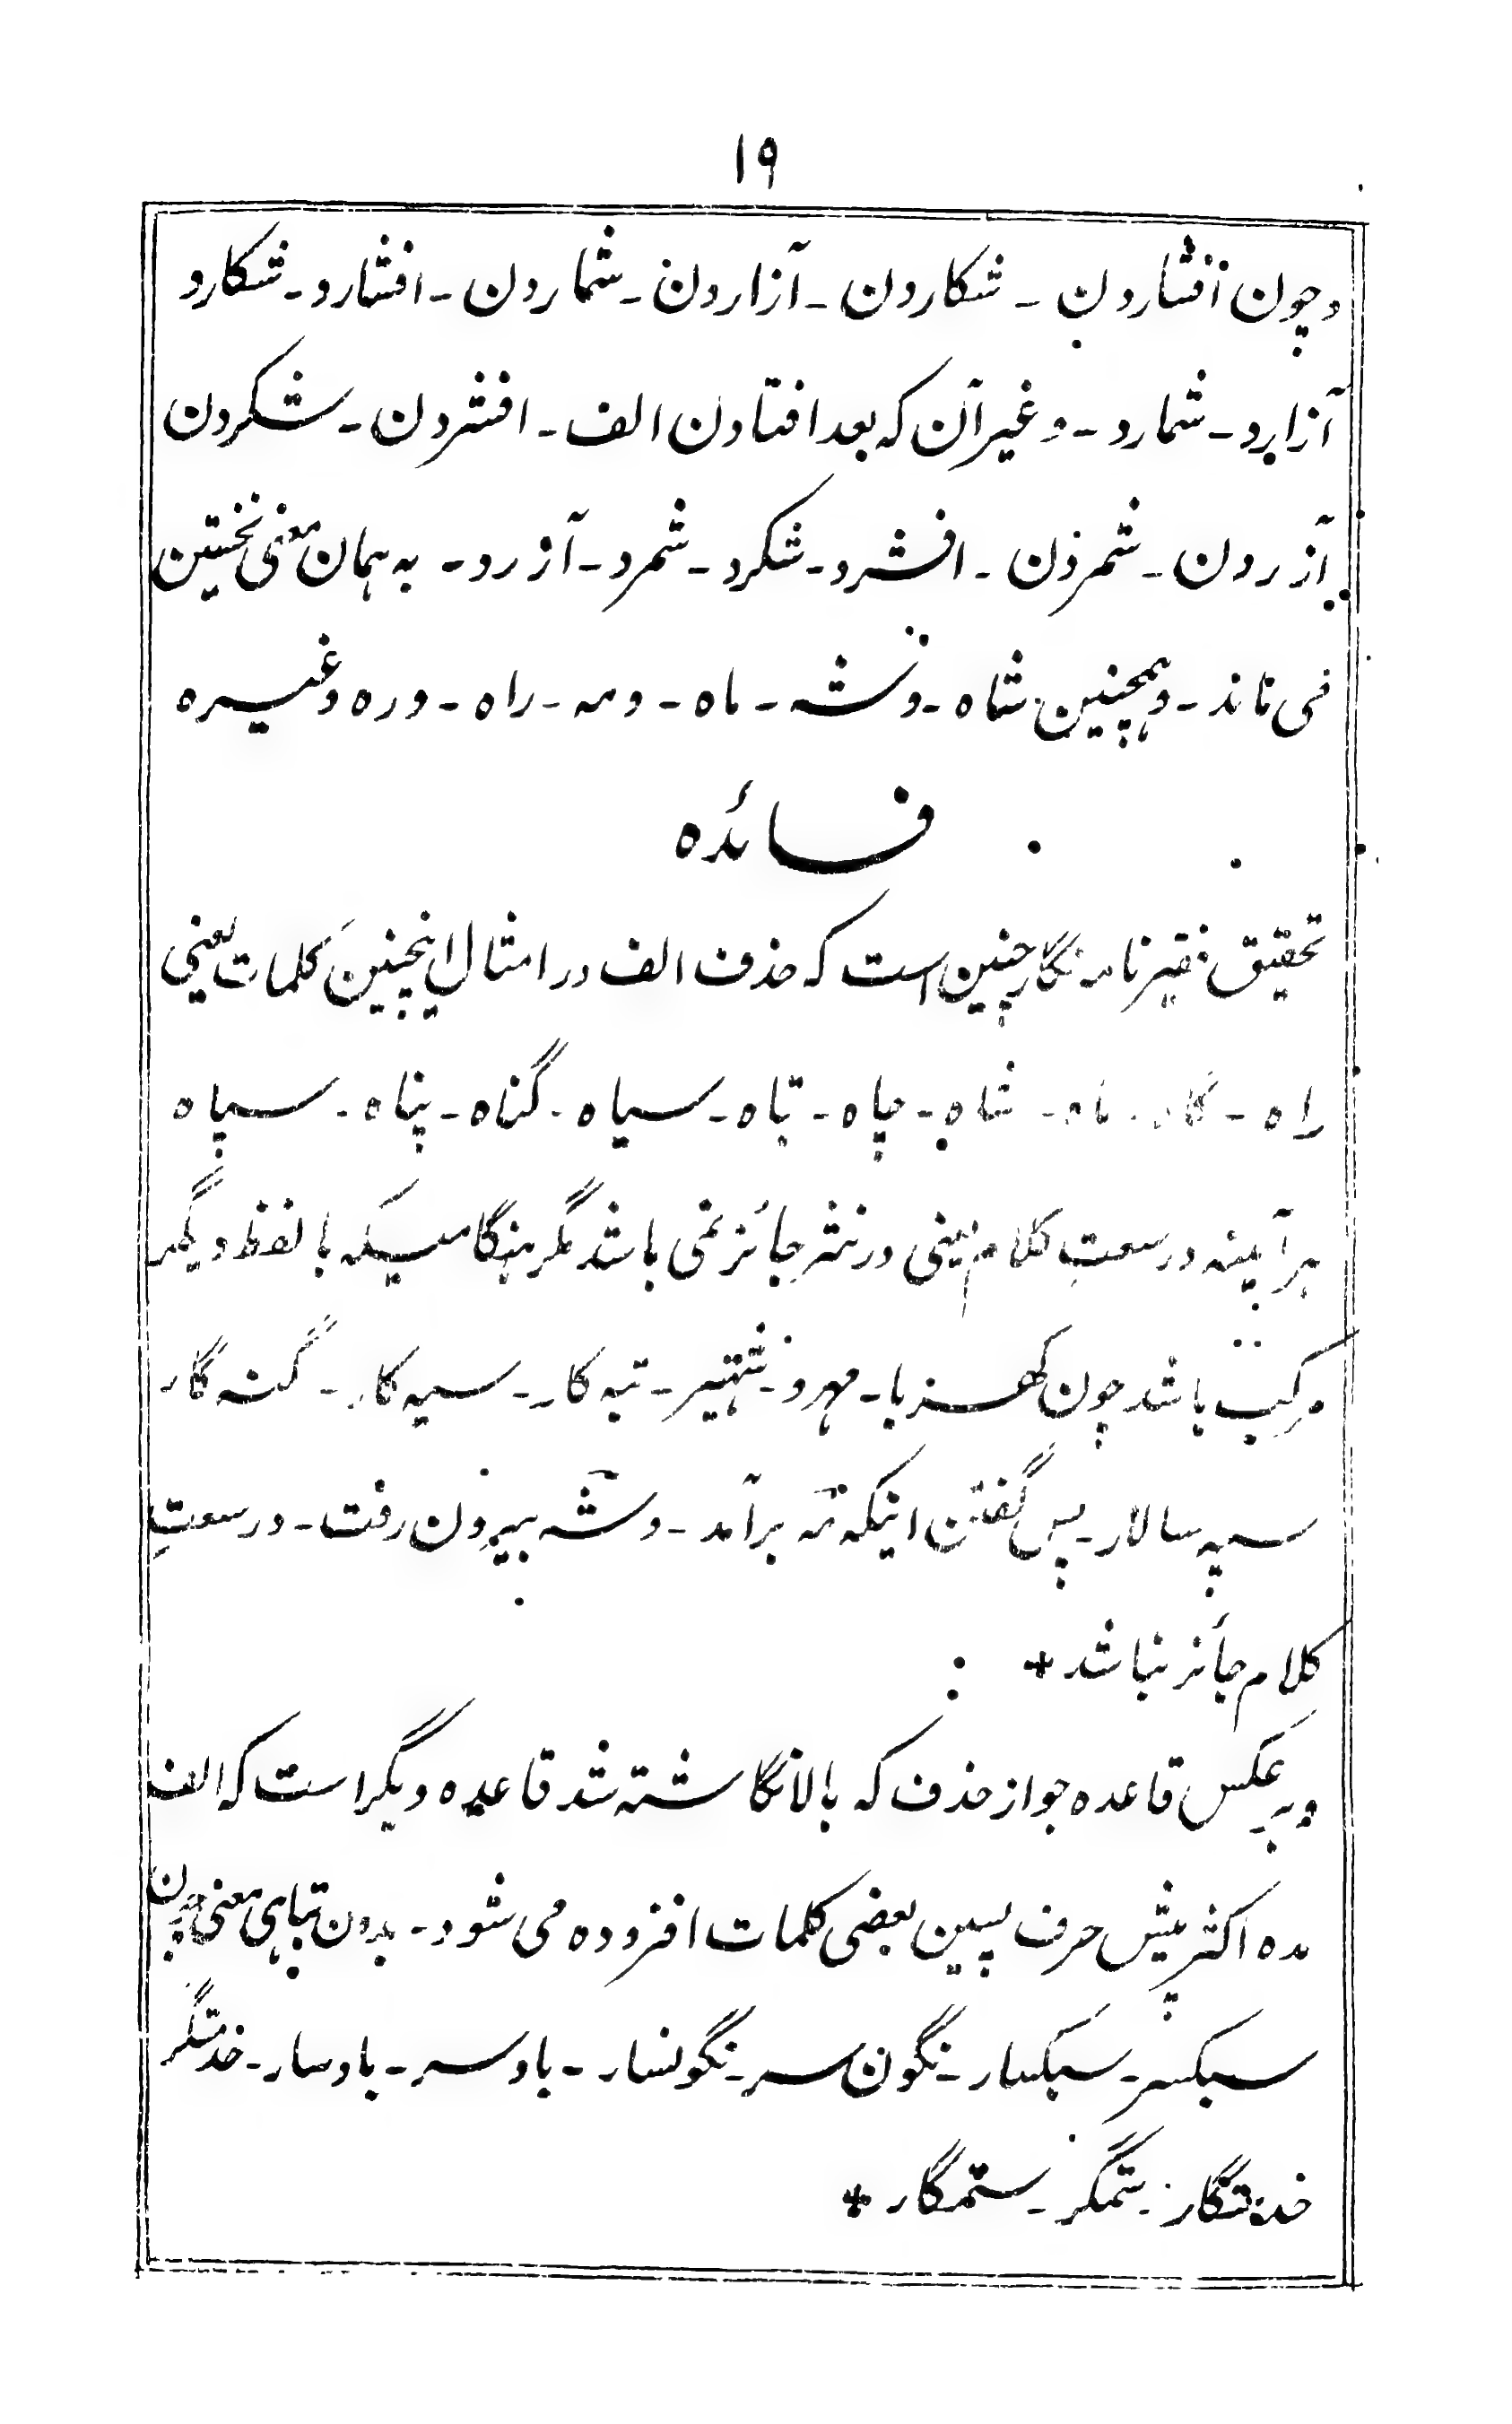 ۱۹
وچون افشاردن - شکاردن - آزاردن - شماردن - افشارد - شکارد
آزارد - شمارد - وغیرآن که بعد افتادن الف - افشردن - شکردن
آزردن - شمردن - افشرد - شکرد - شمرد - آزرد - به همان معنی نخستین
می ماند - وہمچنین شاه - وشه - ماه - ومه - راه - وره وغیره
فائده
تحقیق فقیر نامه نگار چنین است که حذف الف در امثال اینچنین کلمات یعنی
راه - گاه - ماه - شاه - چاه - تباه - سیاه - گناه - پناه - سپاه
ہرآئینه در سعتِ کلام یعنی در نثر جائز نمی باشد مگر ہنگامیکه با لفظ دیگر
مرکب باشد چون کهربا - مهرو - شهتیر - تبه کار - سیه کار - گنه گار
سپه سالار - پس گفتن اینکه مه برآمد - وشه بیرون رفت - در سعتِ
کلام جائز نباشد +
وبر عکس قاعده جواز حذف که بالا نگاشته شد قاعده دیگر است که الف
مده اکثر پیش حرف پسین بعضی کلمات افزوده می شود - بدون تباہی معنی چون
سبکسر - سبکسار - نگون سر - نگونسار - بادسر - بادسار - خدمتگر
خدمتگار - ستمگر - ستمگار +